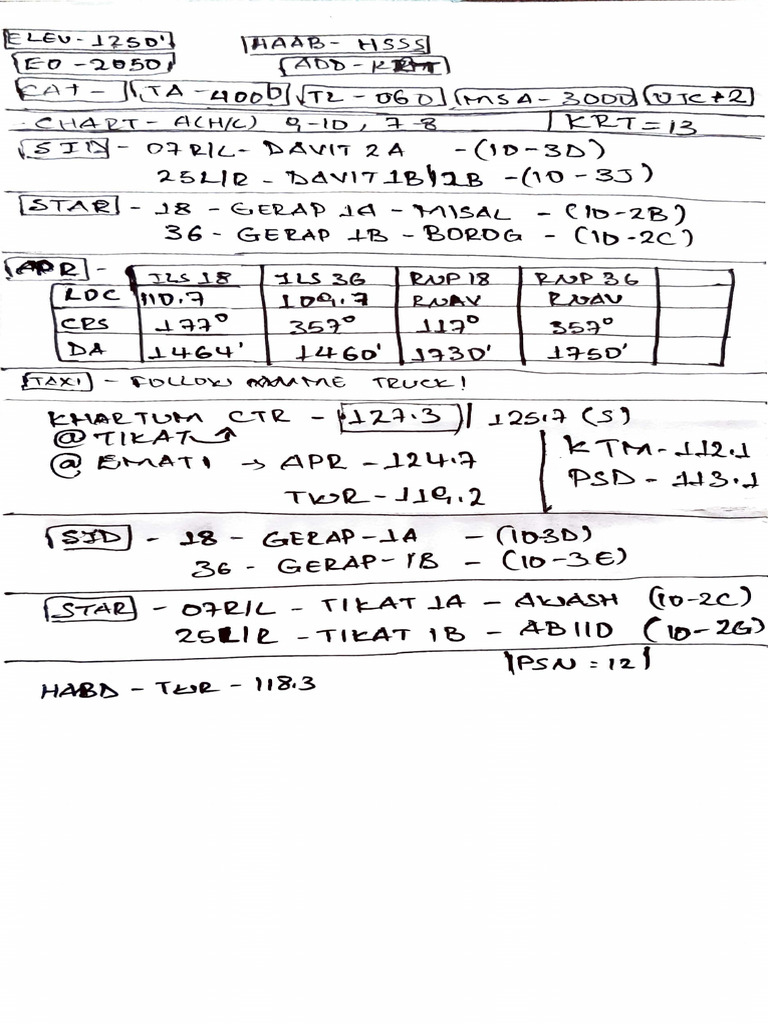 ELEV-1250' HAAB-HSSS
EO-2050' ADD-KRT
CAT- TA-4000 TL-060 MSA-3000 UTC+2
CHART-A(H/L) 9-10, 7-8 KRT=13
SID - 07R/L-DAVIT 2A -(10-3D)
25L/R - DAVIT 1B/2B -(10-3J)
STAR - 18 - GERAP 1A - MISAL - (10-2B)
36 - GERAP 1B - BOROG - (10-2C)
APR - ILS 18 ILS 36 RNP 18 RNP 36
LOC 110.7 109.7 RNAV RNAV
CRS 177° 357° 117° 357°
DA 1464' 1460' 1730' 1750'
TAXI - FOLLOW TRUCK!
KHARTUM CTR - 127.3 125.7 (S)
@ TIKAT KTM-112.1
@ EMATI → APR - 124.7 PSD - 113.1
TWR-119.2
SID - 18 - GERAP-1A - (103D)
36 - GERAP-1B - (10-3E)
STAR - 07R/L - TIKAT 1A - AWASH (10-2C)
25L/R - TIKAT 1B - ABIID (10-2G)
PSN = 12
HABD - TWR - 118.3